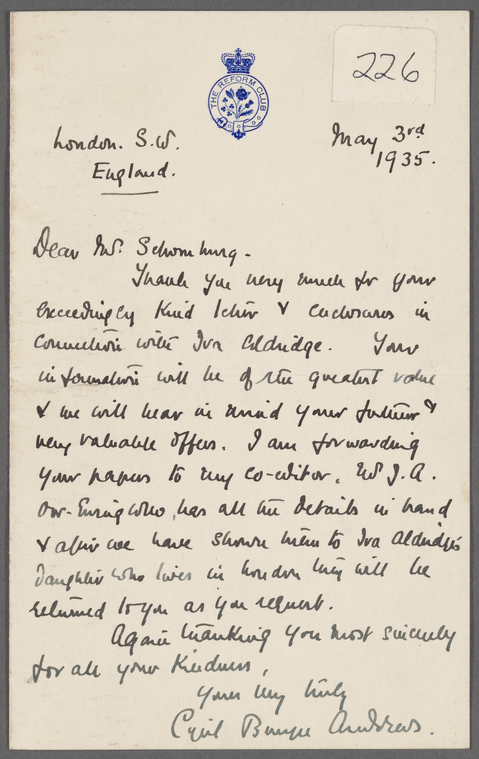 THE REFORM CLUB
226
London. S.W.
England.
May 3rd
1935.
Dear Mr. Schomburg.
Thank you very much for your
exceedingly kind letter & enclosures in
connection with Ira Aldridge. Your
information will be of the greatest value
& we will bear in mind your further &
very valuable offers. I am forwarding
your papers to my co-editor, Mr J. A.
Orr-Ewing who, has all the details in hand
& after we have shown them to Ira Aldridge's
daughter who lives in London they will be
returned to you as you request.
Again thanking you most sincerely
for all your kindness,
Yours very truly
Cyril Bruyn Andrews.